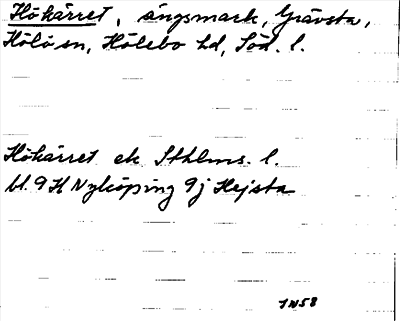 Hökärret, ängsmark, Grävsta,
Hölö sn, Hölebo hd, Söd. l.
Hökärret ek Sthlms. l.
bl. 9H Nyköping 9j Hejsta
1N58